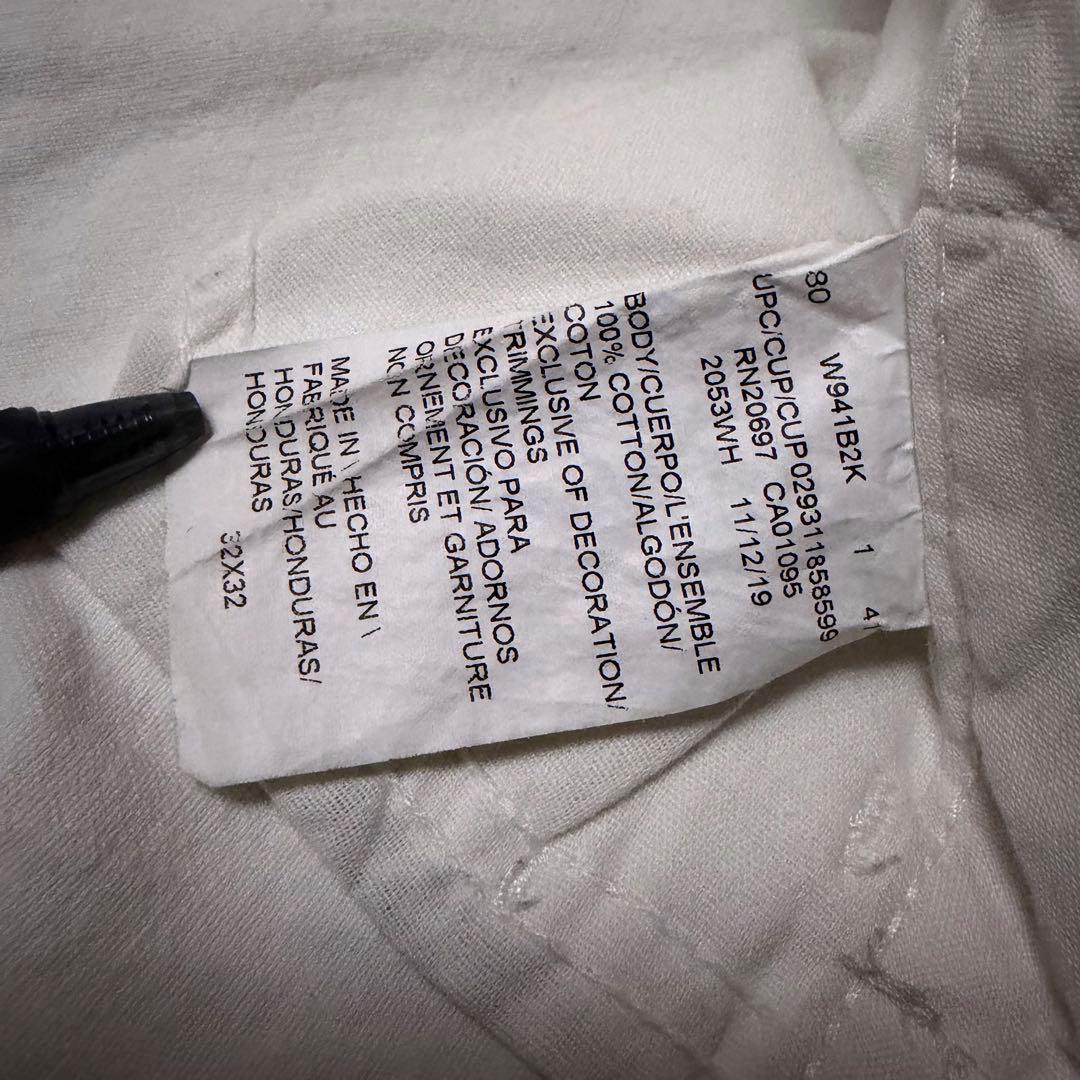 80 W941B2K 1 41
UPC/CUP/CUP 029311858599
RN20697 CA01095
2053WH 11/12/19
BODY/CUERPO/L'ENSEMBLE
100% COTTON/ALGODÓN/
COTON
EXCLUSIVE OF DECORATION/
TRIMMINGS
EXCLUSIVO PARA
DECORACIÓN/ ADORNOS
ORNEMENT ET GARNITURE
NON COMPRIS
MADE IN \ HECHO EN \
FABRIQUÉ AU
HONDURAS/HONDURAS/
HONDURAS
32X32